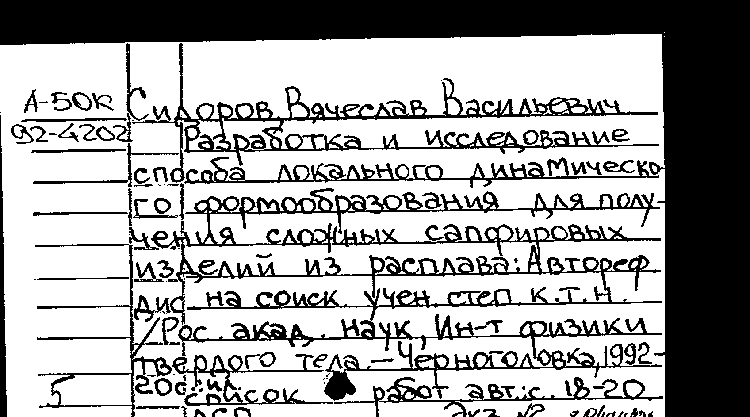 А-50К Сидоров, Вячеслав Васильевич
92-4202 Разработка и исследование
способа локального динамическо-
го формообразования для полу-
чения сложных сапфировых
изделий из расплава: Автореф.
дис. на соиск. учен. степ. к.т.н.
/Рос. акад. наук, Ин-т физики
твердого тела. – Черноголовка, 1992-
20с.:ил.
5 список работ авт.: с. 18-20.
ДСП Экз. №